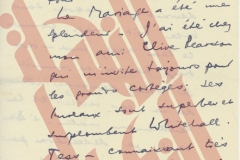 Le Mariage a été une
splendeur - J'ai été chez
mon ami Clive Pearson
qui m'invite toujours pour
les grands cortèges. Ses
bureaux sont superbes et
surplombent Whitehall.
Tess - connaissant très